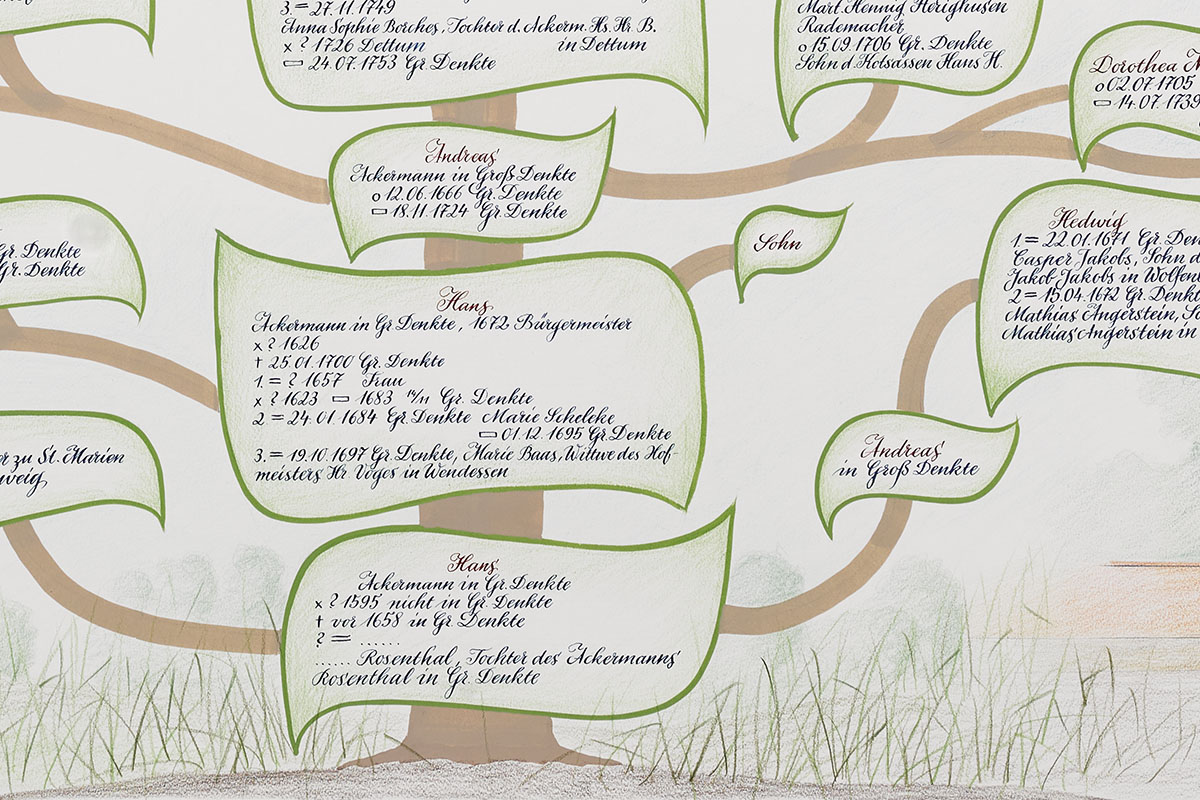 3. = 27.11.1749
Anna Sophie Borches, Tochter d. Ackerm. Hs. Hr. B.
x ? 1726 Dettum in Dettum
▭ 24.07.1753 Gr. Denkte
Mart Hennig Herighusen
Rademacher
o 15.09.1706 Gr. Denkte
Sohn d. Kotsassen Hans H.
Dorothea
o 02.07.1705
▭ 14.07.1739
Andreas
Ackermann in Groß Denkte
o 12.06.1666 Gr. Denkte
▭ 18.11.1724 Gr. Denkte
Gr. Denkte
Gr. Denkte
Sohn
Hedwig
1 = 22.01.1671 Gr.
Casper Jakobs, Sohn d
Jakob Jakobs in
2 = 15.04.1672 Gr.
Mathias Angerstein,
Mathias Angerstein in
Hans
Ackermann in Gr. Denkte, 1672 Bürgermeister
x ? 1626
† 25.01.1700 Gr. Denkte
1. = ? 1657 Frau
x ? 1623 ▭ 1683 Gr. Denkte
2 = 24.01.1684 Gr. Denkte Marie Scheleke
▭ 01.12.1695 Gr. Denkte
3. = 19.10.1697 Gr. Denkte, Marie Baas, Wittwe des Hof-
meisters Hr. Voges in Wendessen
zu St. Marien
Andreas
in Groß Denkte
Hans
Ackermann in Gr. Denkte
x ? 1595 nicht in Gr. Denkte
† vor 1658 in Gr. Denkte
? = ......
...... Rosenthal, Tochter des Ackermanns
Rosenthal in Gr. Denkte